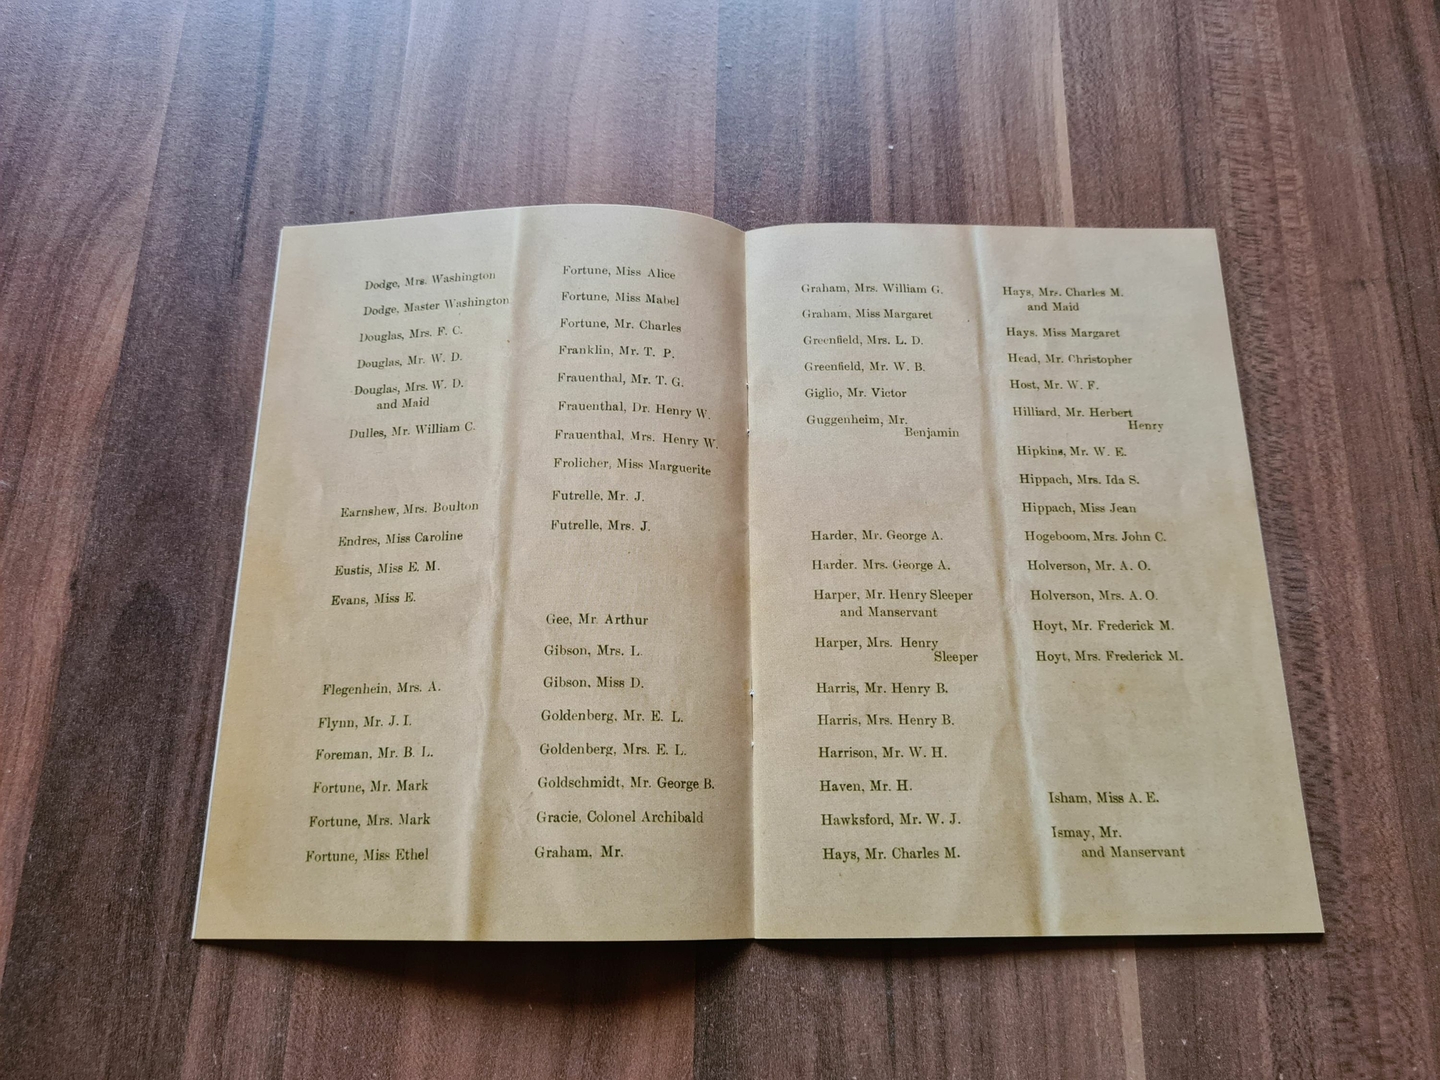 Dodge, Mrs. Washington
Dodge, Master Washington
Douglas, Mrs. F. C.
Douglas, Mr. W. D.
Douglas, Mrs. W. D.
and Maid
Dulles, Mr. William C.
Earnshew, Mrs. Boulton
Endres, Miss Caroline
Eustis, Miss E. M.
Evans, Miss E.
Flegenhein, Mrs. A.
Flynn, Mr. J. I.
Foreman, Mr. B. L.
Fortune, Mr. Mark
Fortune, Mrs. Mark
Fortune, Miss Ethel
Fortune, Miss Alice
Fortune, Miss Mabel
Fortune, Mr. Charles
Franklin, Mr. T. P.
Frauenthal, Mr. T. G.
Frauenthal, Dr. Henry W.
Frauenthal, Mrs. Henry W.
Frolicher, Miss Marguerite
Futrelle, Mr. J.
Futrelle, Mrs. J.
Gee, Mr. Arthur
Gibson, Mrs. L.
Gibson, Miss D.
Goldenberg, Mr. E. L.
Goldenberg, Mrs. E. L.
Goldschmidt, Mr. George B.
Gracie, Colonel Archibald
Graham, Mr.
Graham, Mrs. William G.
Graham, Miss Margaret
Greenfield, Mrs. L. D.
Greenfield, Mr. W. B.
Giglio, Mr. Victor
Guggenheim, Mr.
Benjamin
Harder, Mr. George A.
Harder. Mrs. George A.
Harper, Mr. Henry Sleeper
and Manservant
Harper, Mrs. Henry
Sleeper
Harris, Mr. Henry B.
Harris, Mrs. Henry B.
Harrison, Mr. W. H.
Haven, Mr. H.
Hawksford, Mr. W. J.
Hays, Mr. Charles M.
Hays, Mrs. Charles M.
and Maid
Hays. Miss Margaret
Head, Mr. Christopher
Host, Mr. W. F.
Hilliard, Mr. Herbert
Henry
Hipkins, Mr. W. E.
Hippach, Mrs. Ida S.
Hippach, Miss Jean
Hogeboom, Mrs. John C.
Holverson, Mr. A. O.
Holverson, Mrs. A. O.
Hoyt, Mr. Frederick M.
Hoyt, Mrs. Frederick M.
Isham, Miss A. E.
Ismay, Mr.
and Manservant